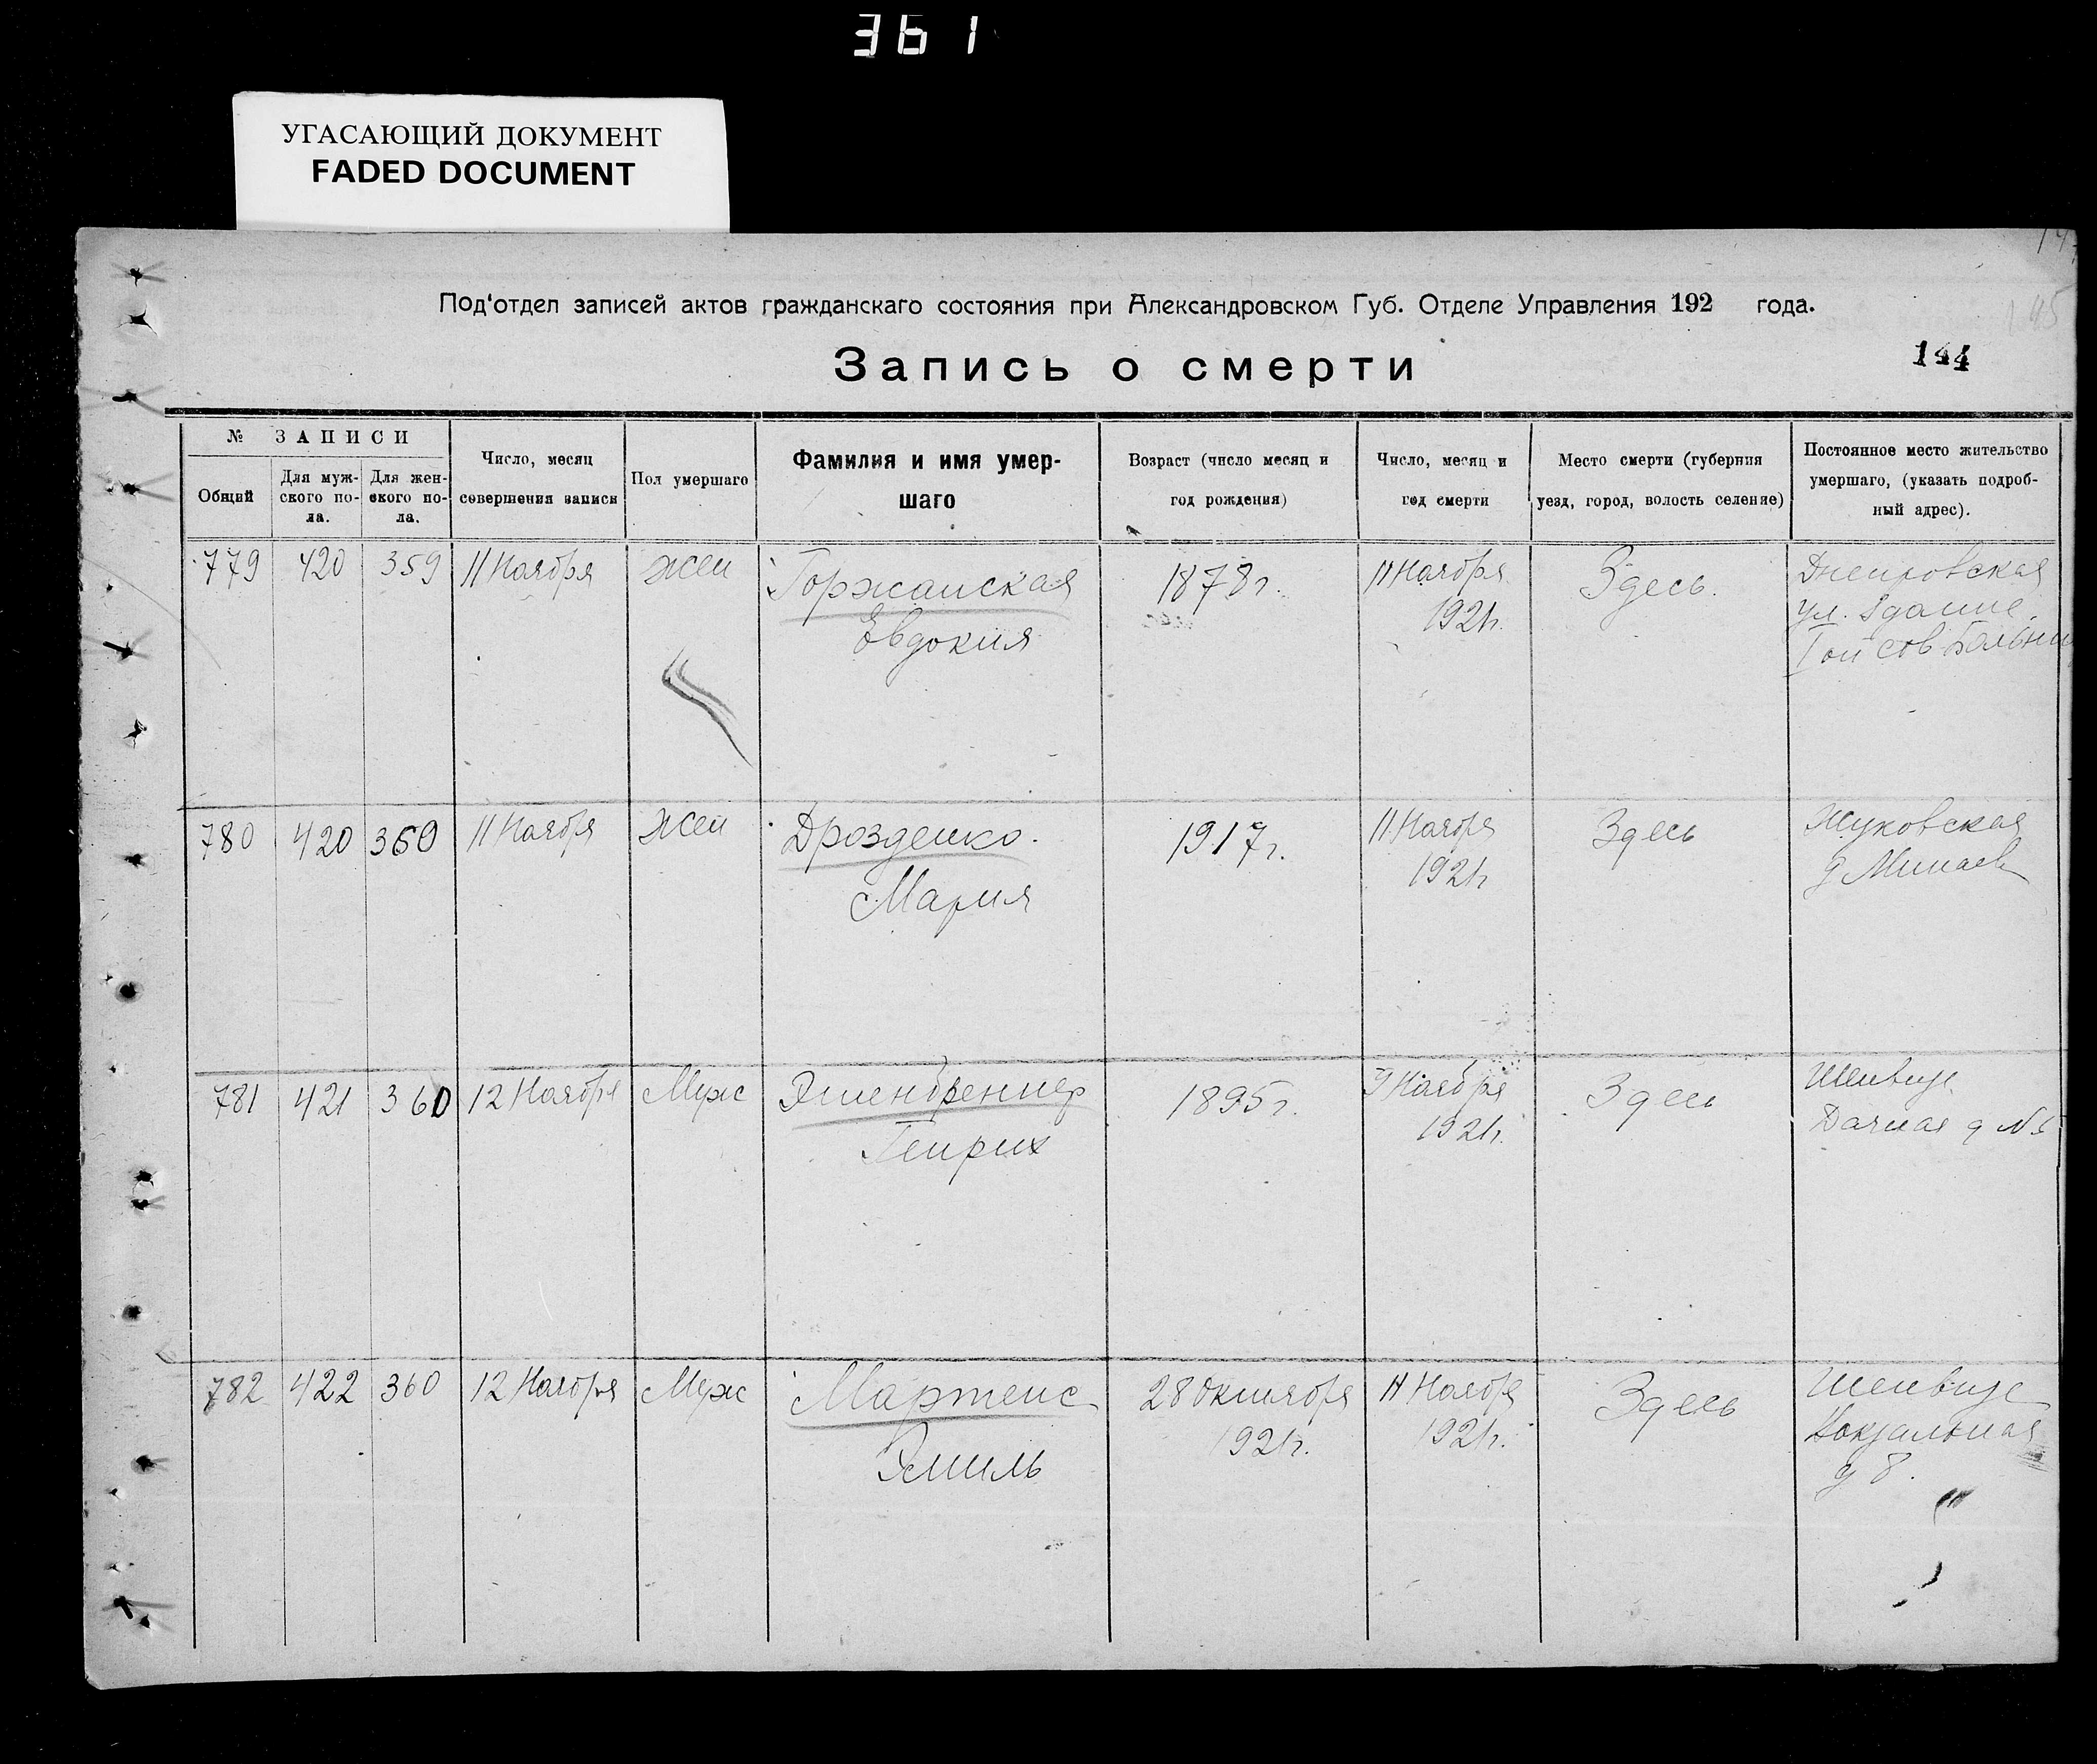 361
УГАСАЮЩИЙ ДОКУМЕНТ
FADED DOCUMENT
Под'отдел записей актов гражданскаго состояния при Александровском Губ. Отделе Управления 192 года.
145
Запись о смерти
144
№ ЗАПИСИ
Общий
Для муж-
ского по-
ла.
Для жен-
ского по-
ла.
Число, месяц
совершения записи
Пол умершаго
Фамилия и имя умер-
шаго
Возраст (число месяц и
год рождения)
Число, месяц и
год смерти
Место смерти (губерния
уезд, город, волость селение)
Постоянное место жительство
умершаго, (указать подроб-
ный адрес).
779 420 359 11 Ноября жен Горжанская 1878г. 11 Ноября Здесь. Днепровская
Евдокия 1921г. ул. Здание
Iой сов больни
780 420 360 11 Ноября жен Дрозденко. 1917г. 11 Ноября Здесь Жуковская
Мария 1921г д Минаев
781 421 360 12 Ноября Муж Эленбреннер 1895г. 9 Ноября Здесь Шенвизе
Генрих 1921г. Дачная д №
782 422 360 12 Ноября Муж Мартенс 28 Октября 11 Ноября Здесь Шенвизе
Эмиль 1921г. 1921г. Вокзальная
д 8.